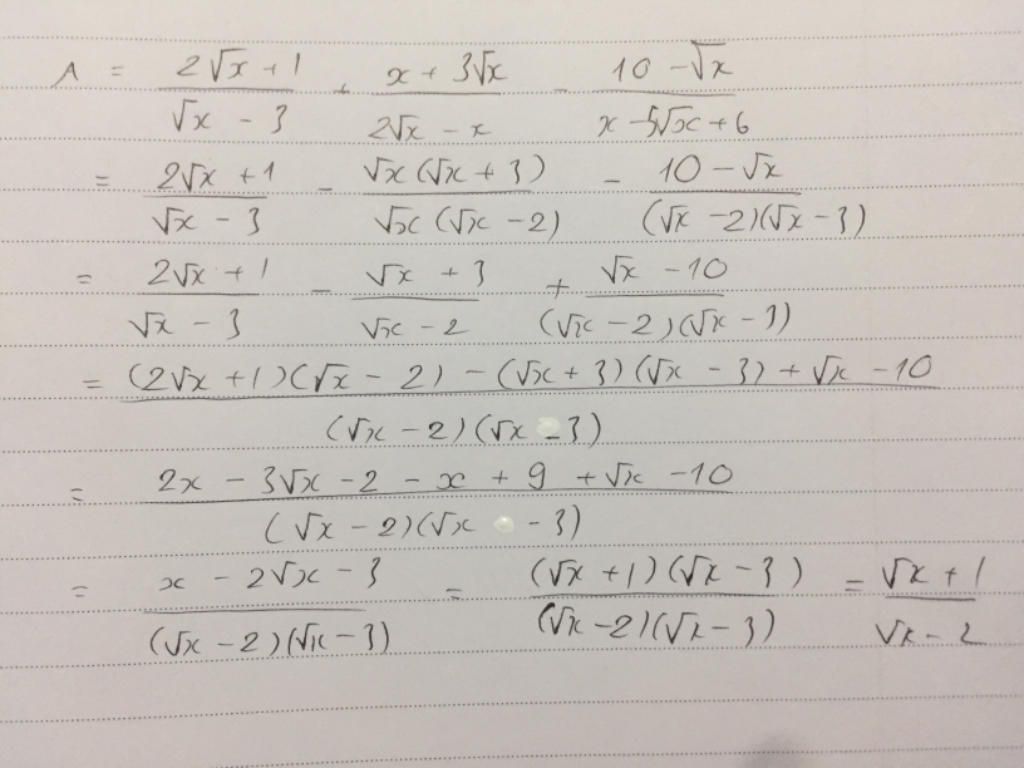 A = (2√x + 1)/(√x - 3) + (x + 3√x)/(2√x - x) - (10 - √x)/(x - 5√x + 6)
= (2√x + 1)/(√x - 3) - (√x(√x + 3))/(√x(√x - 2)) - (10 - √x)/((√x - 2)(√x - 3))
= (2√x + 1)/(√x - 3) - (√x + 3)/(√x - 2) + (√x - 10)/((√x - 2)(√x - 3))
= ((2√x + 1)(√x - 2) - (√x + 3)(√x - 3) + √x - 10)/((√x - 2)(√x - 3))
= (2x - 3√x - 2 - x + 9 + √x - 10)/((√x - 2)(√x - 3))
= (x - 2√x - 3)/((√x - 2)(√x - 3)) = ((√x + 1)(√x - 3))/((√x - 2)(√x - 3)) = (√x + 1)/(√x - 2)